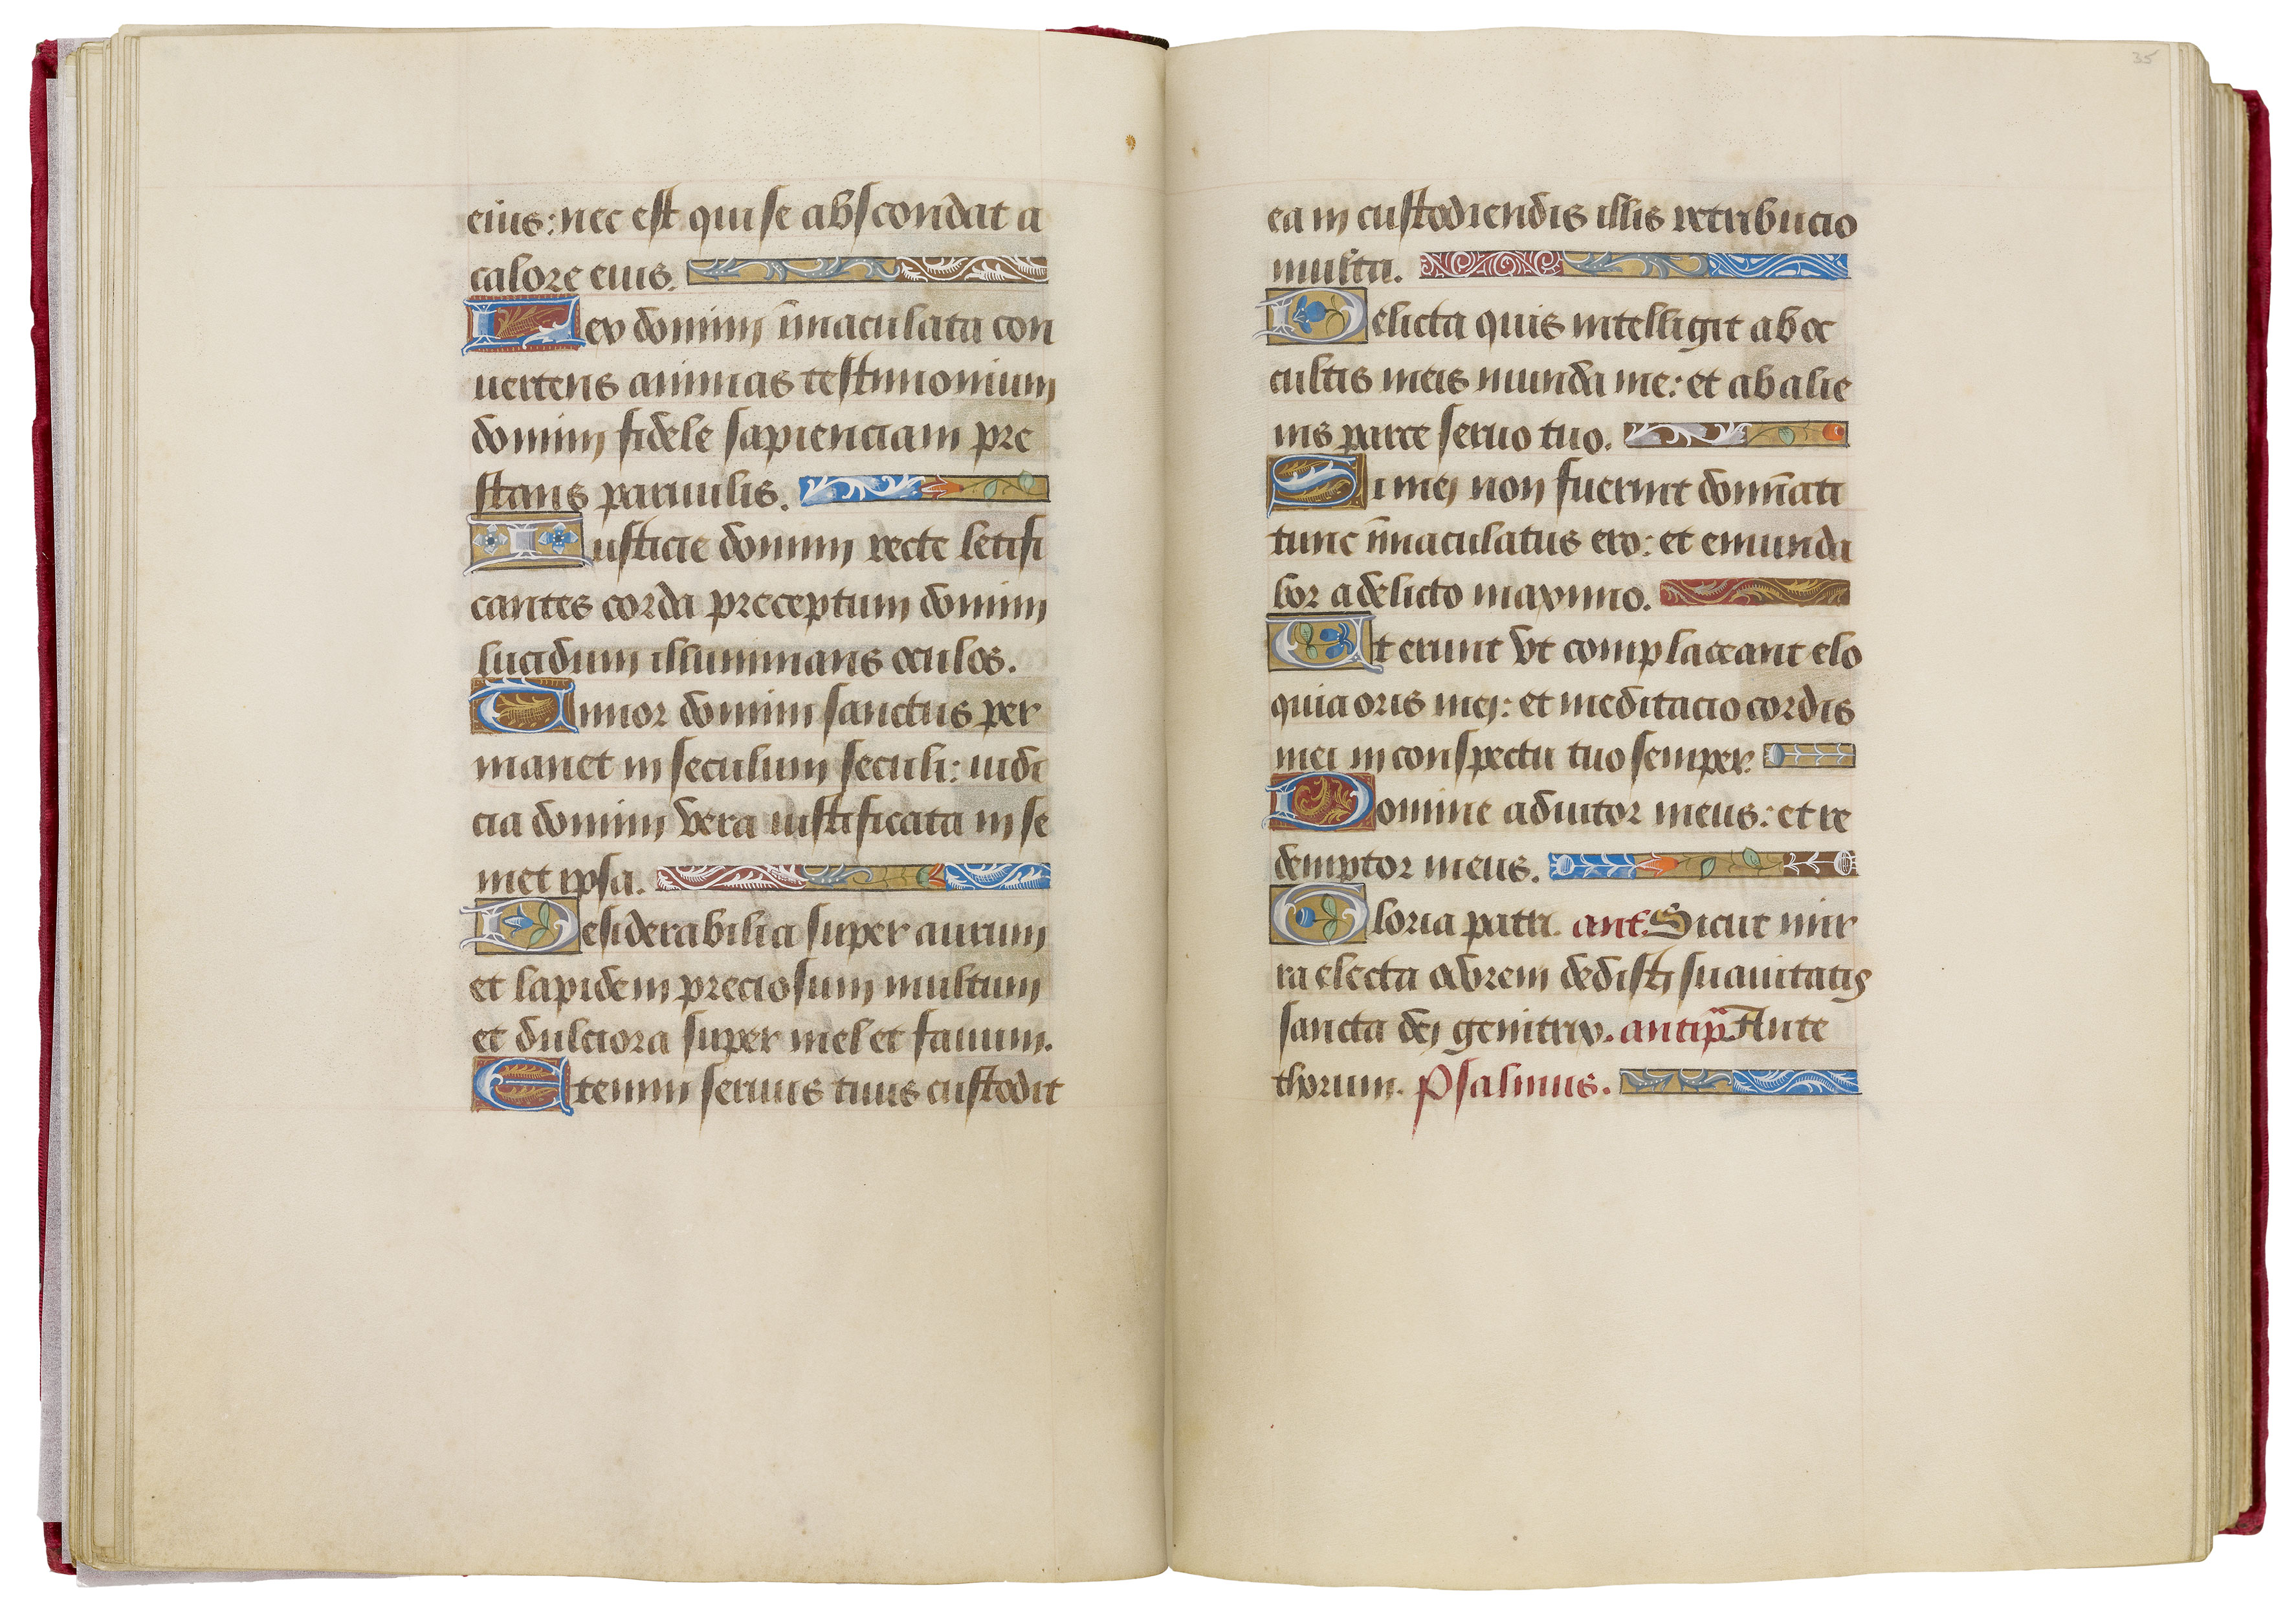 eius: nec est qui se abscondat a
calore eius.
Lex domini īmaculata con
uertens animas testimonium
domini fidele sapienciam pre
stans paruulis.
Iusticie domini recte letifi
cantes corda preceptum domini
lucidum illuminans oculos.
Timor domini sanctus per
manet in seculum seculi: iudi
cia domini vera iustificata in se
met ipsa.
Desiderabilia super aurum
et lapidem preciosum multum
et dulciora super mel et fauum.
Etenim seruus tuus custodit
35
ea in custodiendis illis retribucio
multa.
Delicta quis intelligit ab oc
cultis meis munda me: et ab alie
nis parce seruo tuo.
Si mei non fuerint domīati
tunc īmaculatus ero: et emunda
bor a delicto maximo.
Et erunt vt complaceant elo
quia oris mei: et meditacio cordis
mei in conspectu tuo semper.
Domine adiutor meus: et re
demptor meus.
Gloria patri. ant. Sicut mir
ra electa odorem dedisti suauitatis
sancta dei genitrix. antiph̄. Ante
thorum. Psalmus.